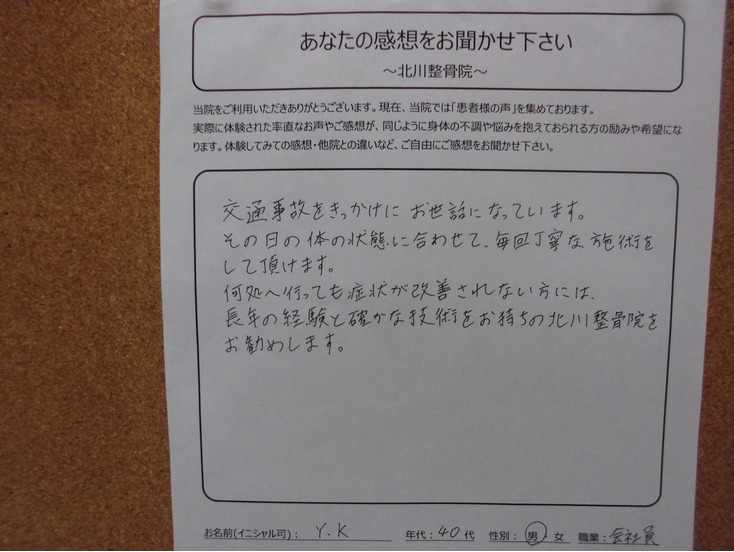 あなたの感想をお聞かせ下さい
～北川整骨院～
当院をご利用いただきありがとうございます。現在、当院では「患者様の声」を集めております。
実際に体験された率直なお声やご感想が、同じように身体の不調や悩みを抱えておられる方の励みや希望にな
ります。体験してみての感想・他院との違いなど、ご自由にご感想をお聞かせ下さい。
交通事故をきっかけに お世話になっています。
その日の体の状態に合わせて、毎回丁寧な施術を
して頂けます。
何処へ行っても症状が改善されない方には、
長年の経験と確かな技術をお持ちの北川整骨院を
お勧めします。
お名前(イニシャル可)： Y.K 年代：40代 性別：男・女 職業：会社員